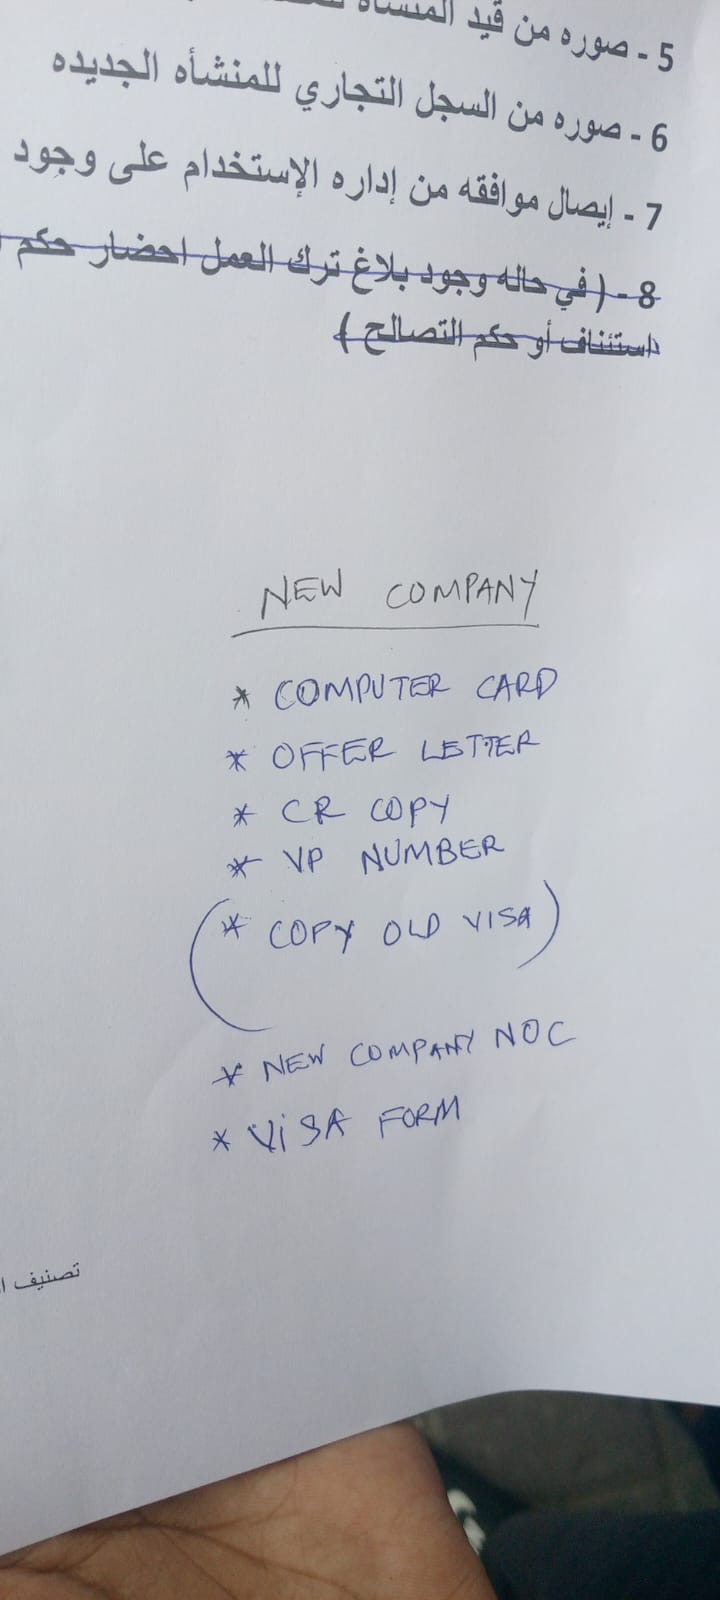 5 - صوره من قيد المنشأه
6 - صوره من السجل التجاري للمنشأه الجديده
7 - إيصال موافقه من إداره الإستخدام على وجود
8 - ( في حاله وجود بلاغ ترك العمل احضار حكم
استئناف أو حكم التصالح )
NEW COMPANY
* COMPUTER CARD
* OFFER LETTER
* CR COPY
* VP NUMBER
(* COPY OLD VISA)
* NEW COMPANY NOC
* ViSA FORM
تصنيف